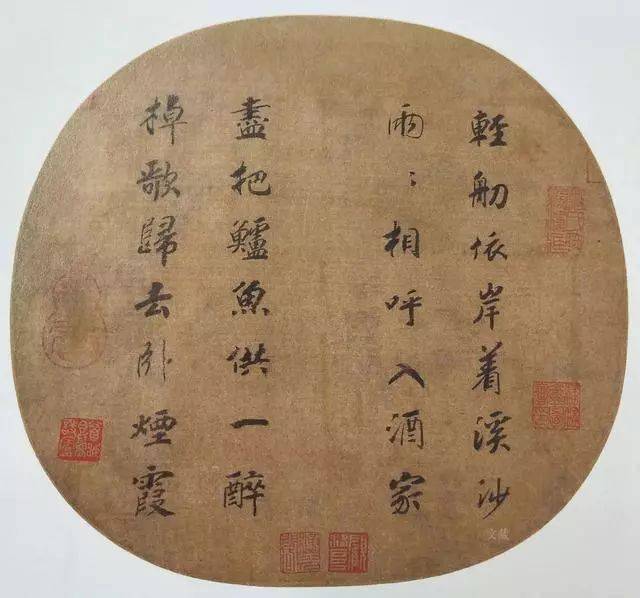 輕舠依岸着溪沙
兩〻相呼入酒家
盡把鱸魚供一醉
棹歌歸去卧煙霞
文藏